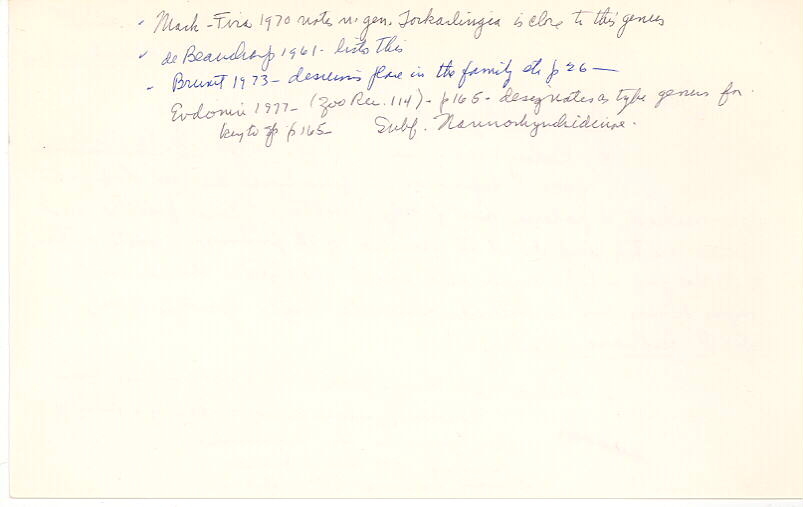 ✓ Mack-Fira 1970 notes n. gen. Torkarlingia is close to this genus
✓ de Beauchamp 1961 - lists this
- Brunet 1973 - discusses place in the family etc p 26 —
Evdonin 1977 - (Zoo Rec. 114) - p165 - designates as type genus for
key to spp p165 Subf. Nannorhynchidinae.